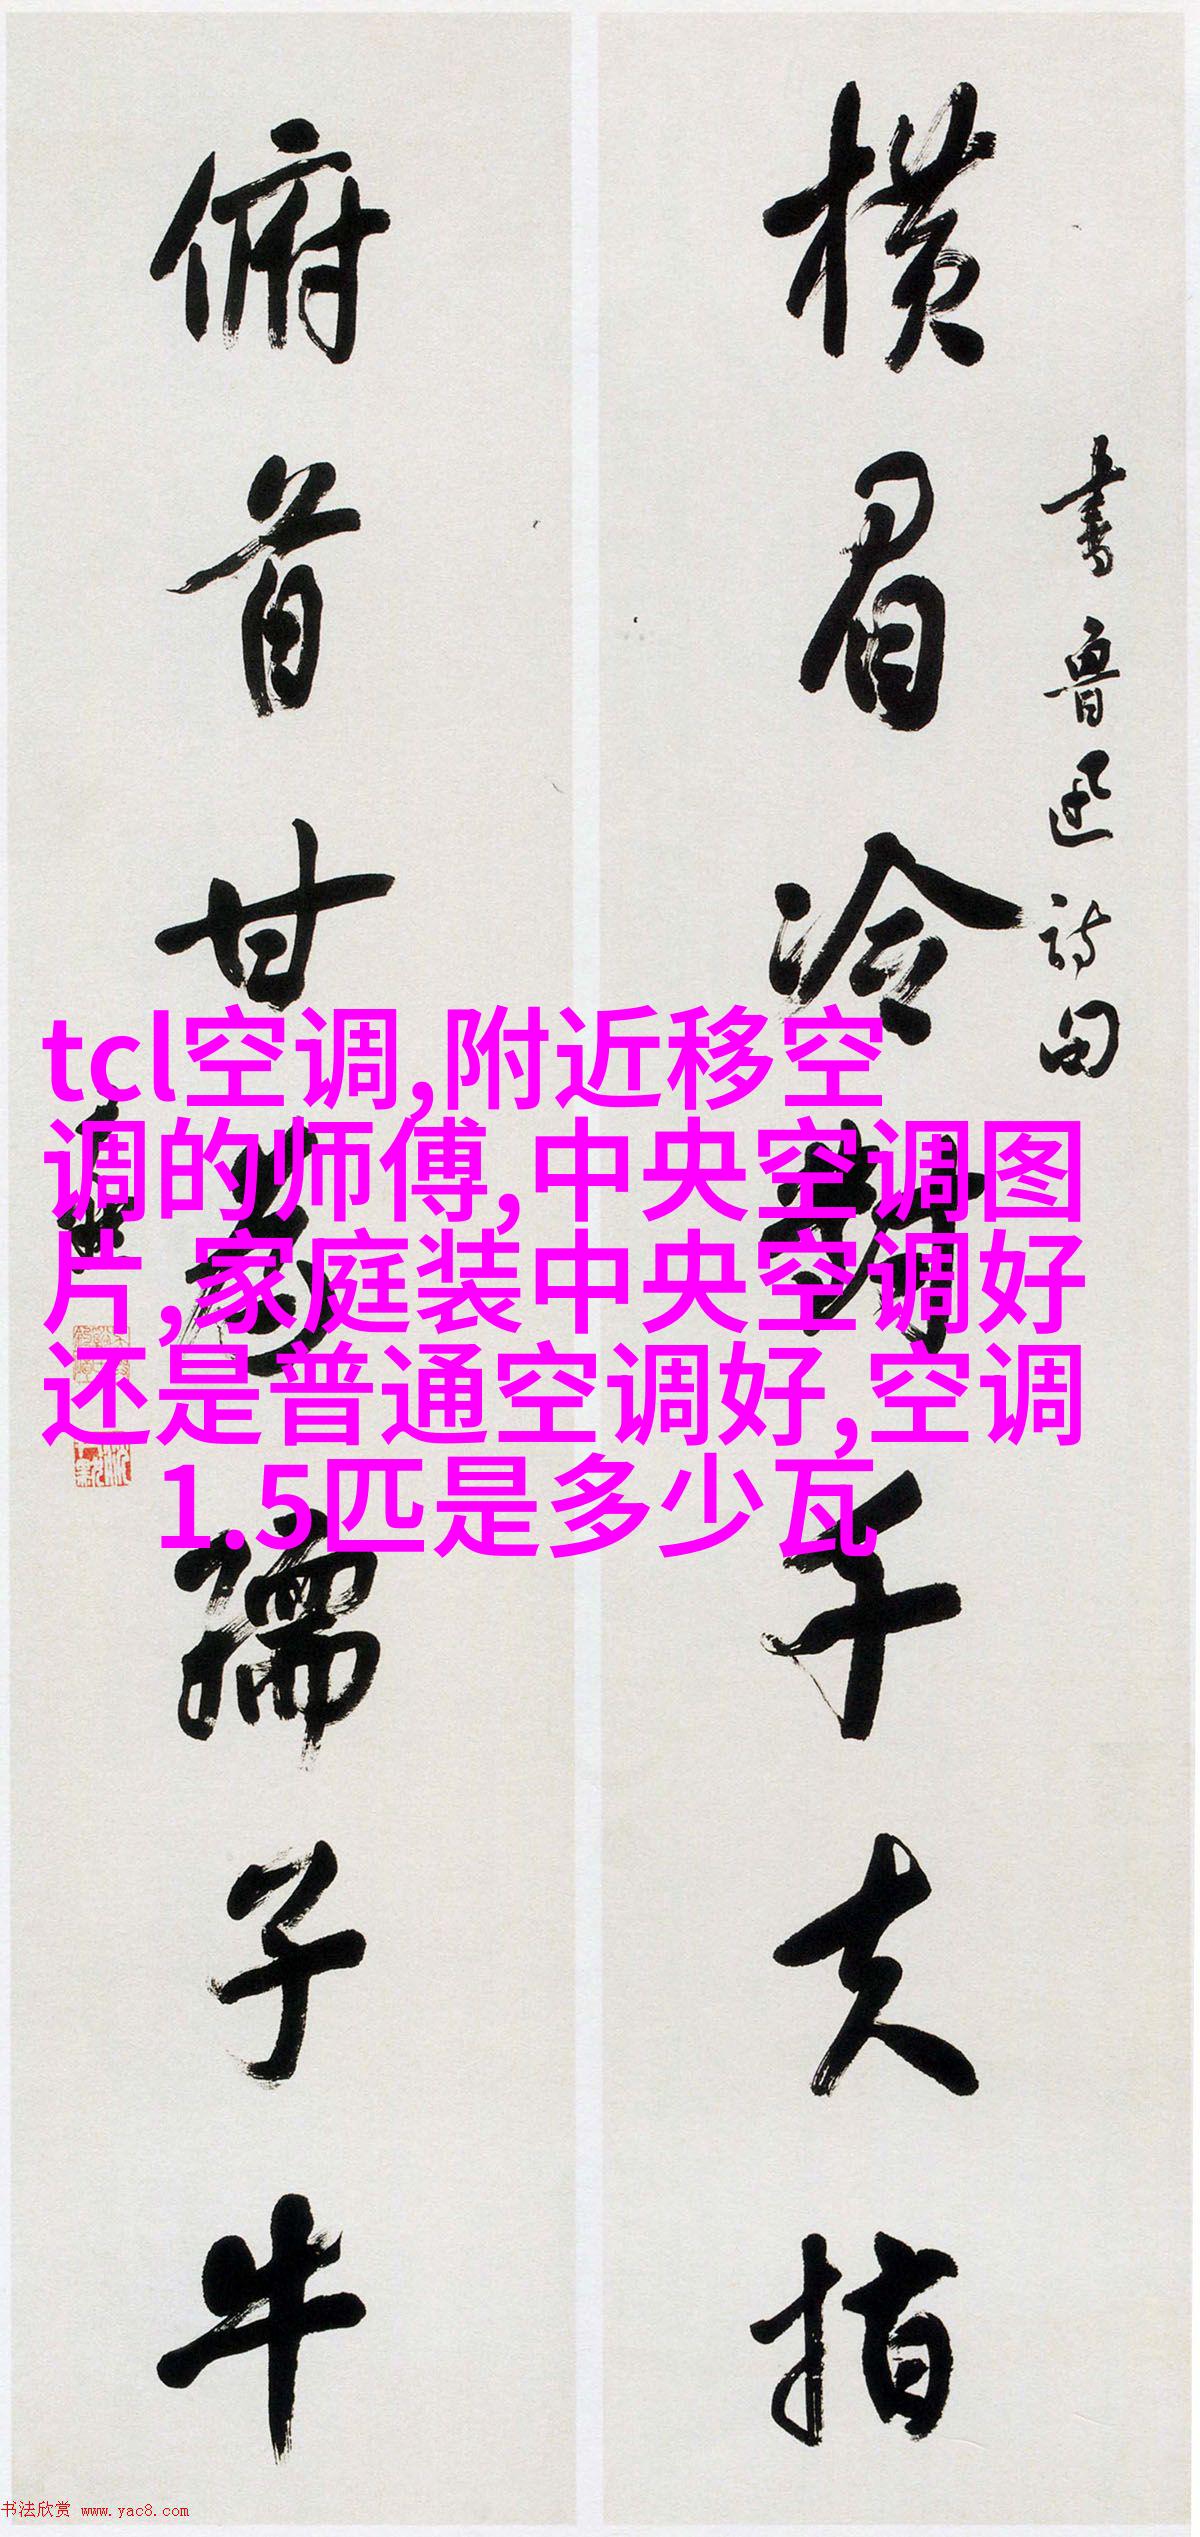 横眉冷對千夫指
書魯迅詩句
俯首甘為孺子牛
tcl空调,附近移空
调的师傅,中央空调图
片,家庭装中央空调好
还是普通空调好,空调
1.5匹是多少瓦
书法欣赏 www.yac8.com